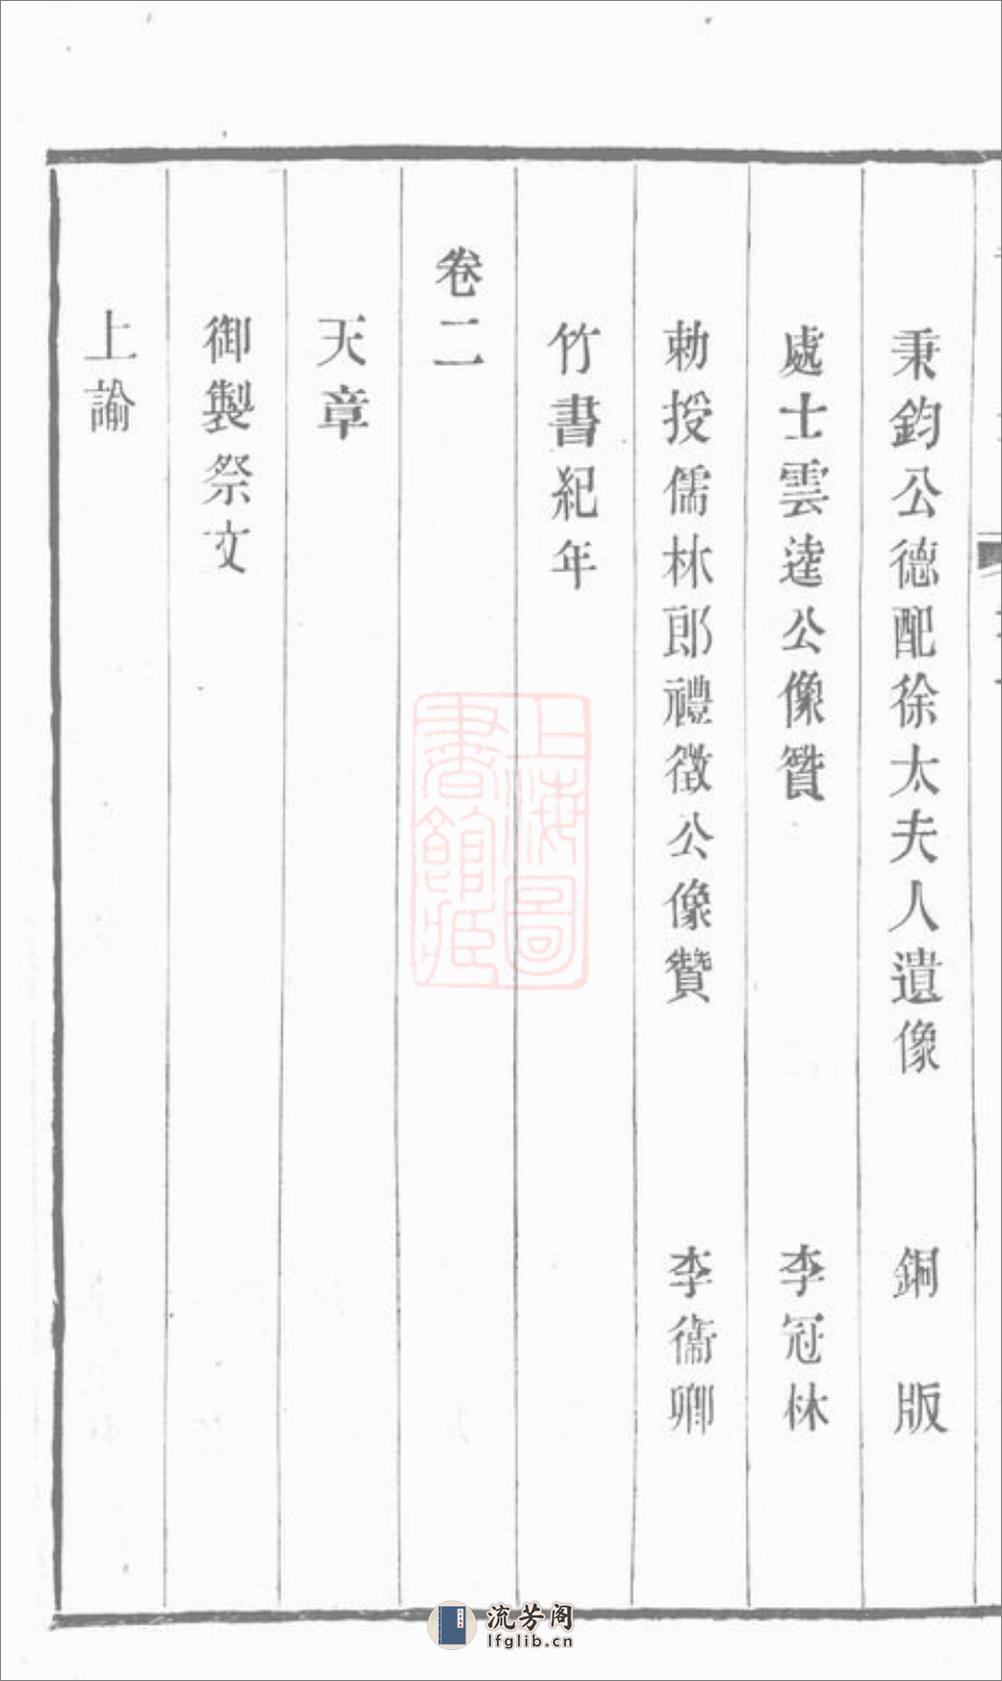 秉鈞公德配徐太夫人遺像 銅版
處士雲逵公像贊 李冠林
勅授儒林郎禮徵公像贊 李衞卿
竹書紀年
卷二
天章
御製祭文
上諭
上海圖書館藏
流芳阁
lfglib.cn